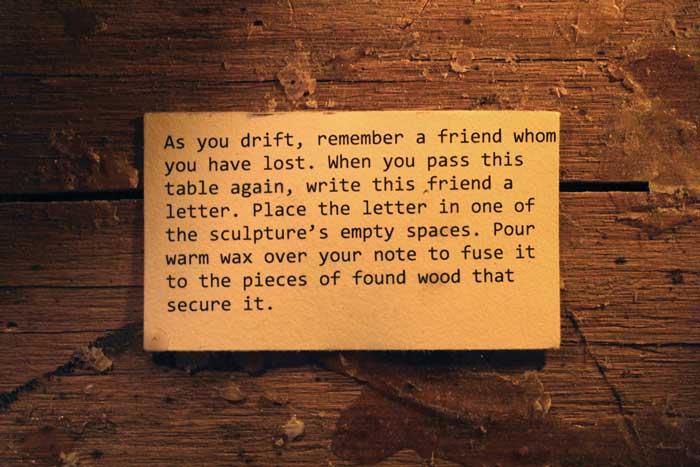 As you drift, remember a friend whom
you have lost. When you pass this
table again, write this friend a
letter. Place the letter in one of
the sculpture’s empty spaces. Pour
warm wax over your note to fuse it
to the pieces of found wood that
secure it.